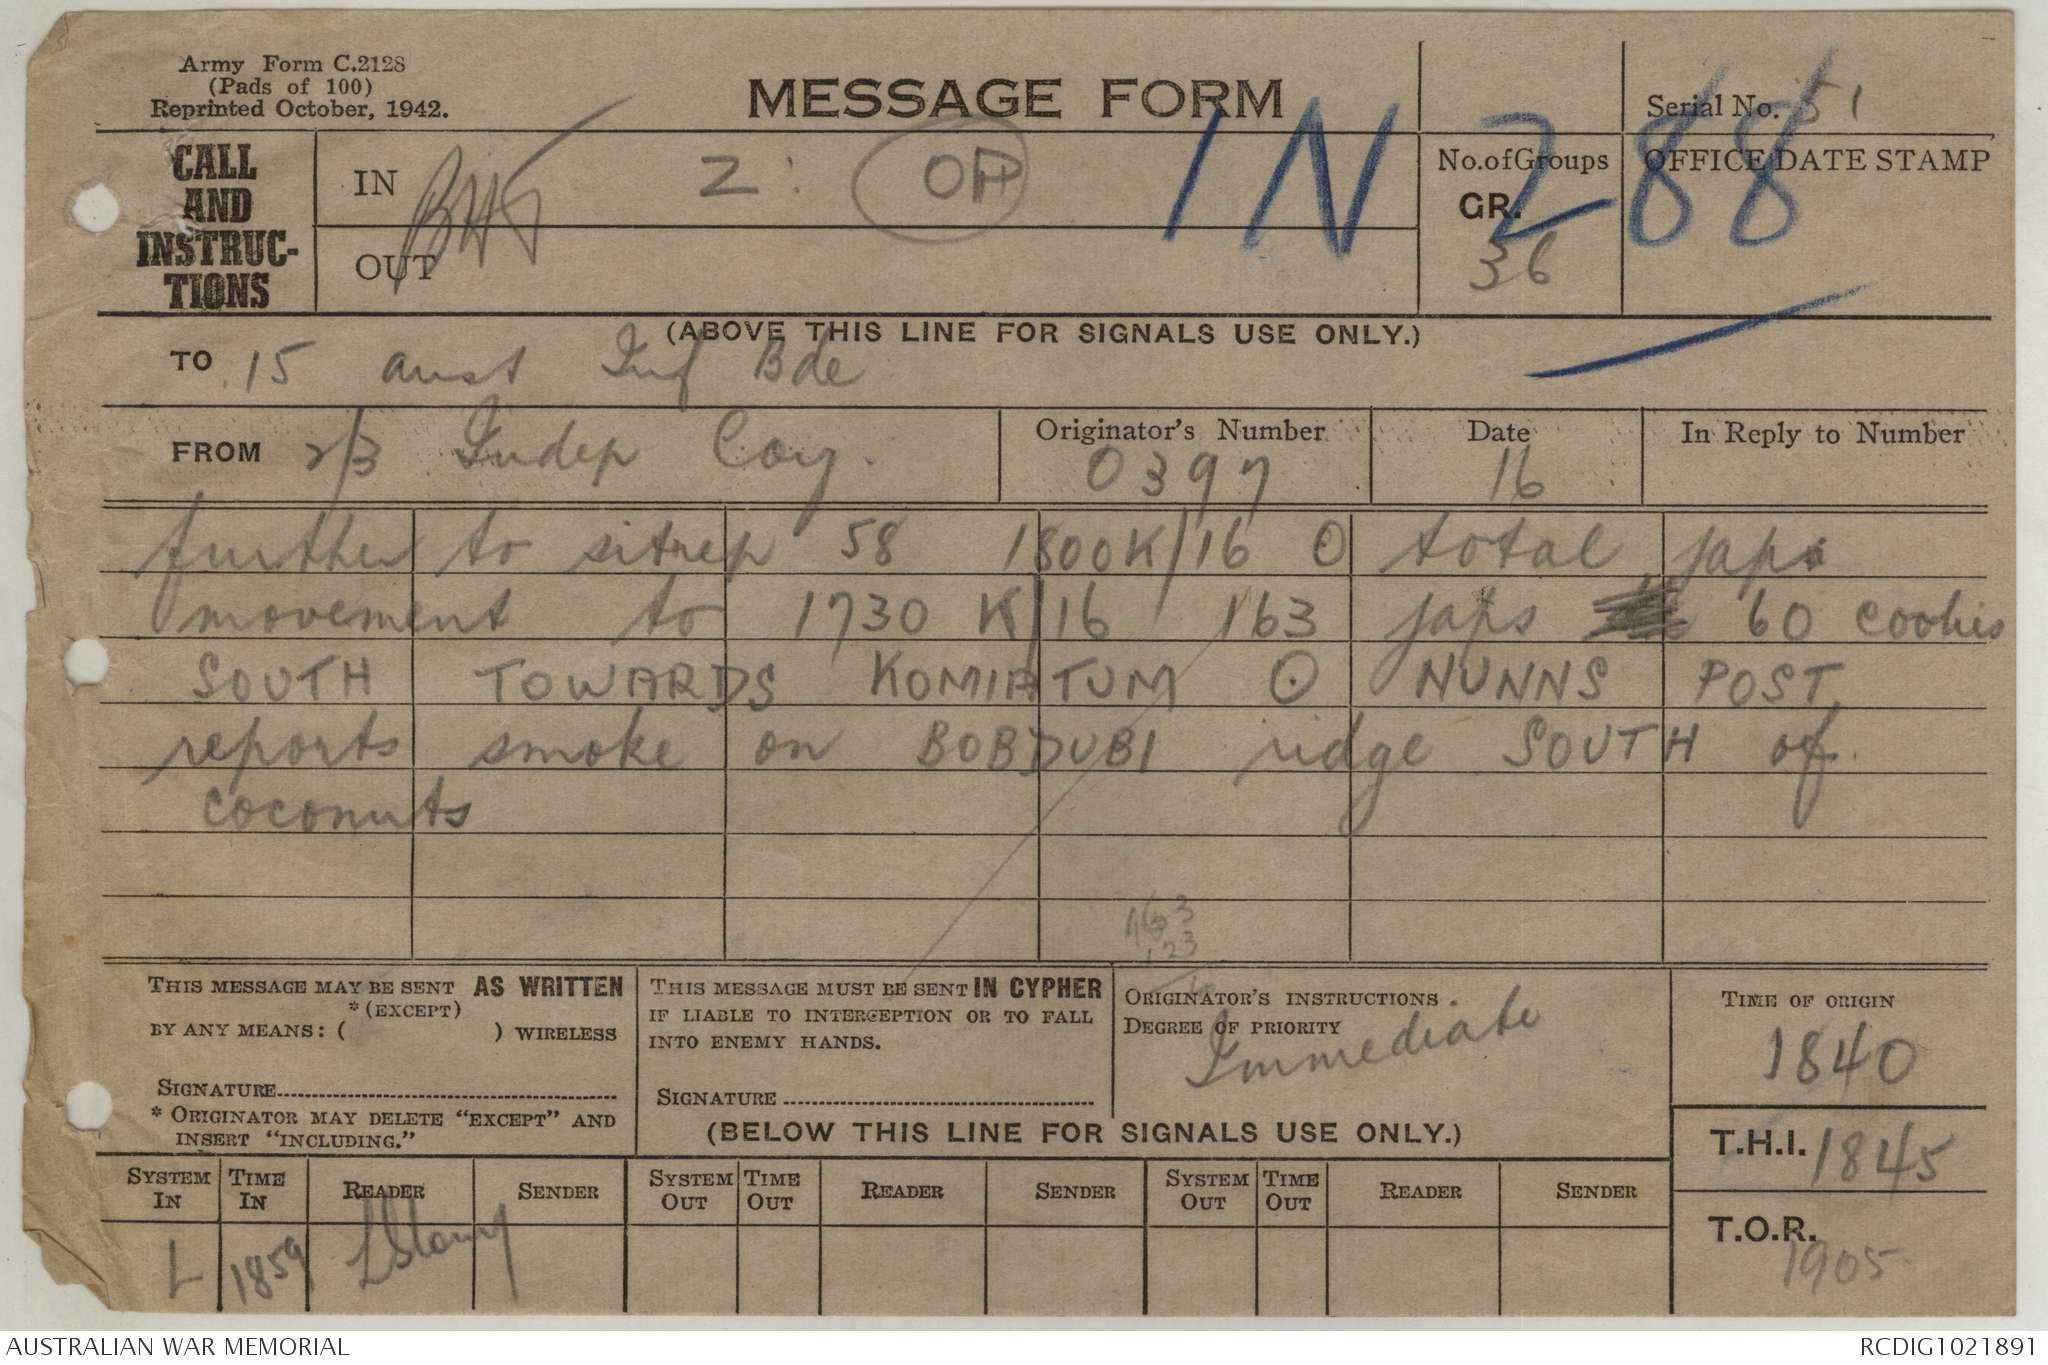 Army Form C.2128
(Pads of 100)
Reprinted October, 1942.
MESSAGE FORM
Serial No. 51
CALL AND INSTRUC-TIONS
IN
Z:
OP
IN 288
No. of Groups
GR.
36
OFFICE DATE STAMP
OUT
(ABOVE THIS LINE FOR SIGNALS USE ONLY.)
TO 15 aust Inf Bde
FROM 2/3 Indep Coy.
Originator's Number
0397
Date
16
In Reply to Number
further to sitrep 58 1800K/16 O total japs
movement to 1730 K/16 163 japs 60 coolies
SOUTH TOWARDS KOMIATUM O NUNNS POST
reports smoke on BOBDUBI ridge SOUTH of
coconuts
163
123
THIS MESSAGE MAY BE SENT AS WRITTEN
*(EXCEPT)
BY ANY MEANS: ( ) WIRELESS
SIGNATURE
* ORIGINATOR MAY DELETE "EXCEPT" AND
INSERT "INCLUDING."
THIS MESSAGE MUST BE SENT IN CYPHER
IF LIABLE TO INTERCEPTION OR TO FALL
INTO ENEMY HANDS.
SIGNATURE
ORIGINATOR'S INSTRUCTIONS.
DEGREE OF PRIORITY
Immediate
TIME OF ORIGIN
1840
(BELOW THIS LINE FOR SIGNALS USE ONLY.)
T.H.I. 1845
T.O.R. 1905
SYSTEM IN
TIME IN
READER
SENDER
SYSTEM OUT
TIME OUT
READER
SENDER
SYSTEM OUT
TIME OUT
READER
SENDER
L 1859
AUSTRALIAN WAR MEMORIAL
RCDIG1021891